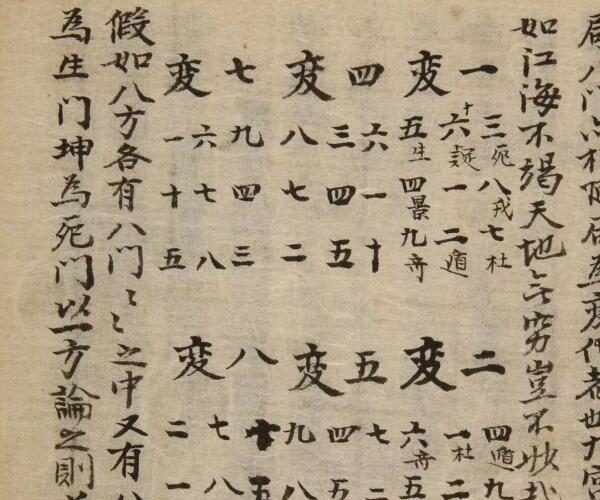 為変作者也九宮
如江海不竭天地无窮豈不妙哉
一変
三死八戎七杜
十六疑一二遁
五生四景九奇
二変
四遁九
一杜二
六奇五
四変
六一十
三四五
八七二
五変
七
四五
九八
七変
九四三
六七八
一十五
八変
十五
七八
二一
假如八方各有八門〻〻之中又有八
為生門坤為死門以一方論之則